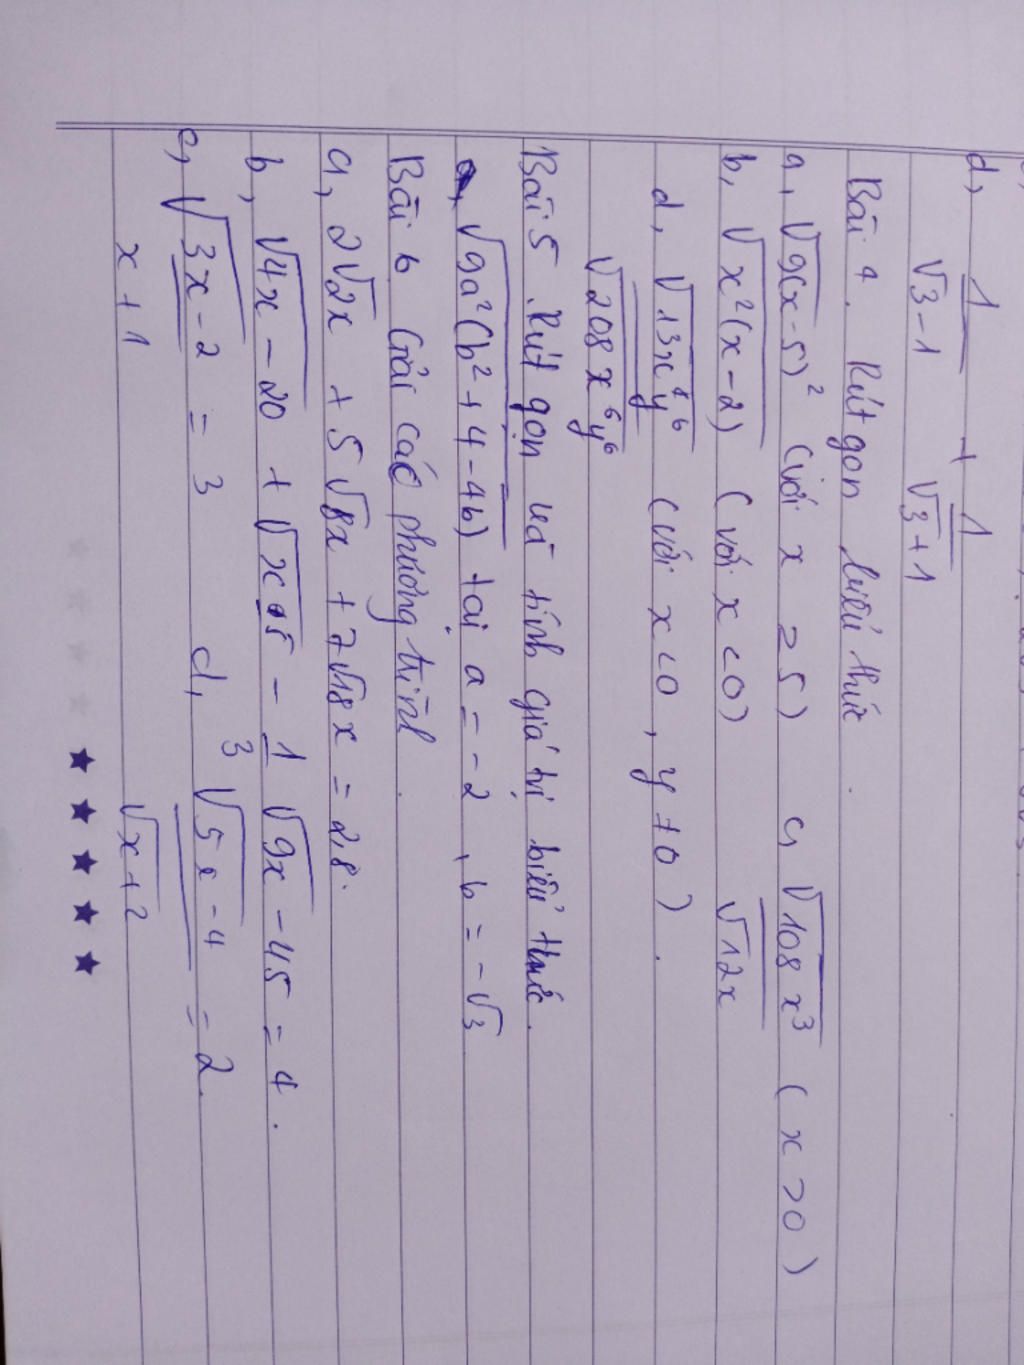 d, 1/(√3-1) + 1/(√3+1)
Bài 4. Rút gọn biểu thức.
a, √9(x-5)² (với x ≥ 5) c, √108x³ / √12x (x > 0)
b, √x²(x-2) (với x < 0)
d, √13x⁴y⁶ / √208x⁶y⁶ (với x < 0, y ≠ 0).
Bài 5. Rút gọn và tính giá trị biểu thức.
a, √9a²(b²+4-4b) tại a = -2, b = -√3
Bài 6 Giải các phương trình.
a, 2√2x + 5√8x + 7√18x = 28.
b, √4x-20 + √x-5 - 1 √9x-45 = 4.
c, √3x-2 / x+1 = 3 d, ³√5x-4 / √x+2 = 2.